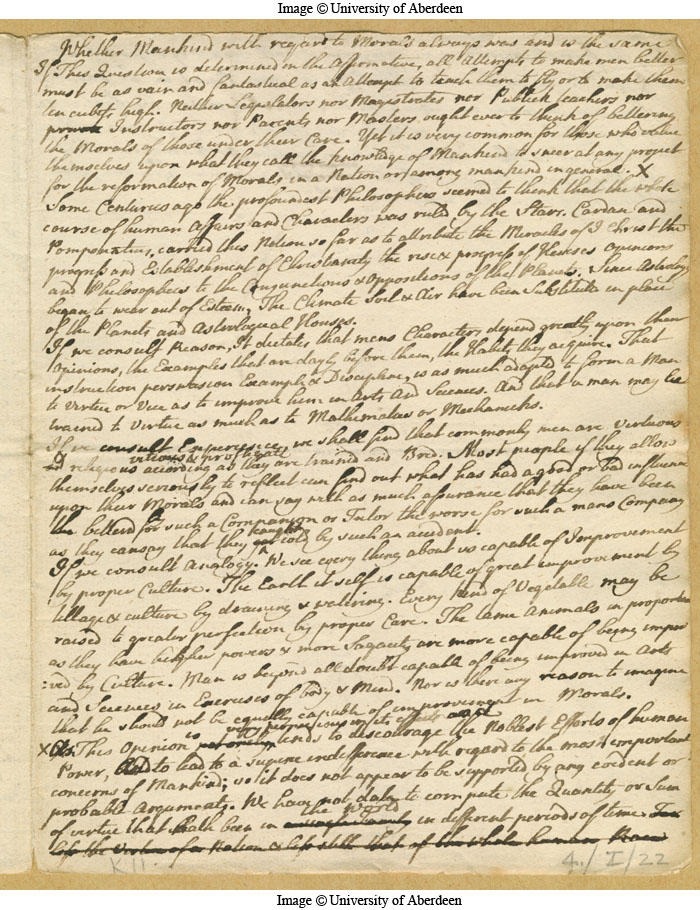 Image © University of Aberdeen
Whether Mankind with regard to Morals always was and is the same
If This Question is determined in the Affirmative, all Attempts to make men better
must be as vain and fantastical as an Attempt to teach them to fly or to make them
ten cubits high. Neither Legislators nor Magistrates nor Publick teachers nor
Instructors nor Parents nor Masters ought ever to think of bettering
the Morals of those under their Care. Yet it is very common for those who value
themselves upon what they call the knowledge of Mankind to sneer at any project
for the reformation of Morals in a Nation or among mankind in general. X
Some Centurys ago the profoundest Philosophers seemed to think that the whole
course of human Affairs and Characters was ruled by the Starr. Cardan and
Pomponatius, carried this Notion so far as to attribute the Miracles of J Christ the
progress and Establishment of Christianity the rise & progress of Heresies Opinions
and Philosophers to the Conjunctions & Oppositions of the Planets. Since Astrology
began to wear out of Esteem, The Climate Soil & Air have been Substitute in place
of the Planets and Astrological Houses.
If we consult Reason, It dictates that mens Characters depend greatly upon their
Opinions, the Examples that are dayly before them, the Habits they acquire. That
instruction perswasion Example & Discipline, is as much adapted to form a Man
to Virtue or Vice as to improve him in Arts And Sciences. And that a man may be
trained to Virtue as much as to Mathematics or Mechanicks.
If we consult Experience, we shall find that commonly men are virtuous
vitious & profligate
religious according as they are trained and Bred. Most people if they allow
themselves seriously to reflect can find out what has had a good or bad influence
upon their Morals and can say with as much assurance that they have been
the betterd for such a Companion or Tutor the worse for such a mans Company
as they can say that they caught cold by such an accident.
If we consult Analogy. We see every thing about us capable of Improvement
by proper Culture. The Earth it self is capable of great improvement by
tillage & culture by draining & watering. Every kind of Vegetable may be
raised to greater perfection by proper Care. The same Animals in proportion
as they have higher powers & more Sagacity are more capable of being impro
:ved by Culture. Man is beyond all doubt capable of being improved in Arts
and Sciences in Exercises of body & Mind. Nor is there any reason to imagine
that he should not be equally capable of improvement in Morals.
X As This Opinion is very pernicious in its effects as it tends to discourage the Noblest Efforts of human
Power, And to lead to a supine indifference with regard to the most important
concerns of Mankind; so it does not appear to be supported by any evident or
probable Arguments. We have not data to compute the Quantity or Sum
of virtue that hath been in the World in different periods of time
less the Virtue of a Nation & less still that of the whole human Race
K11.
4/I/22
Image © University of Aberdeen